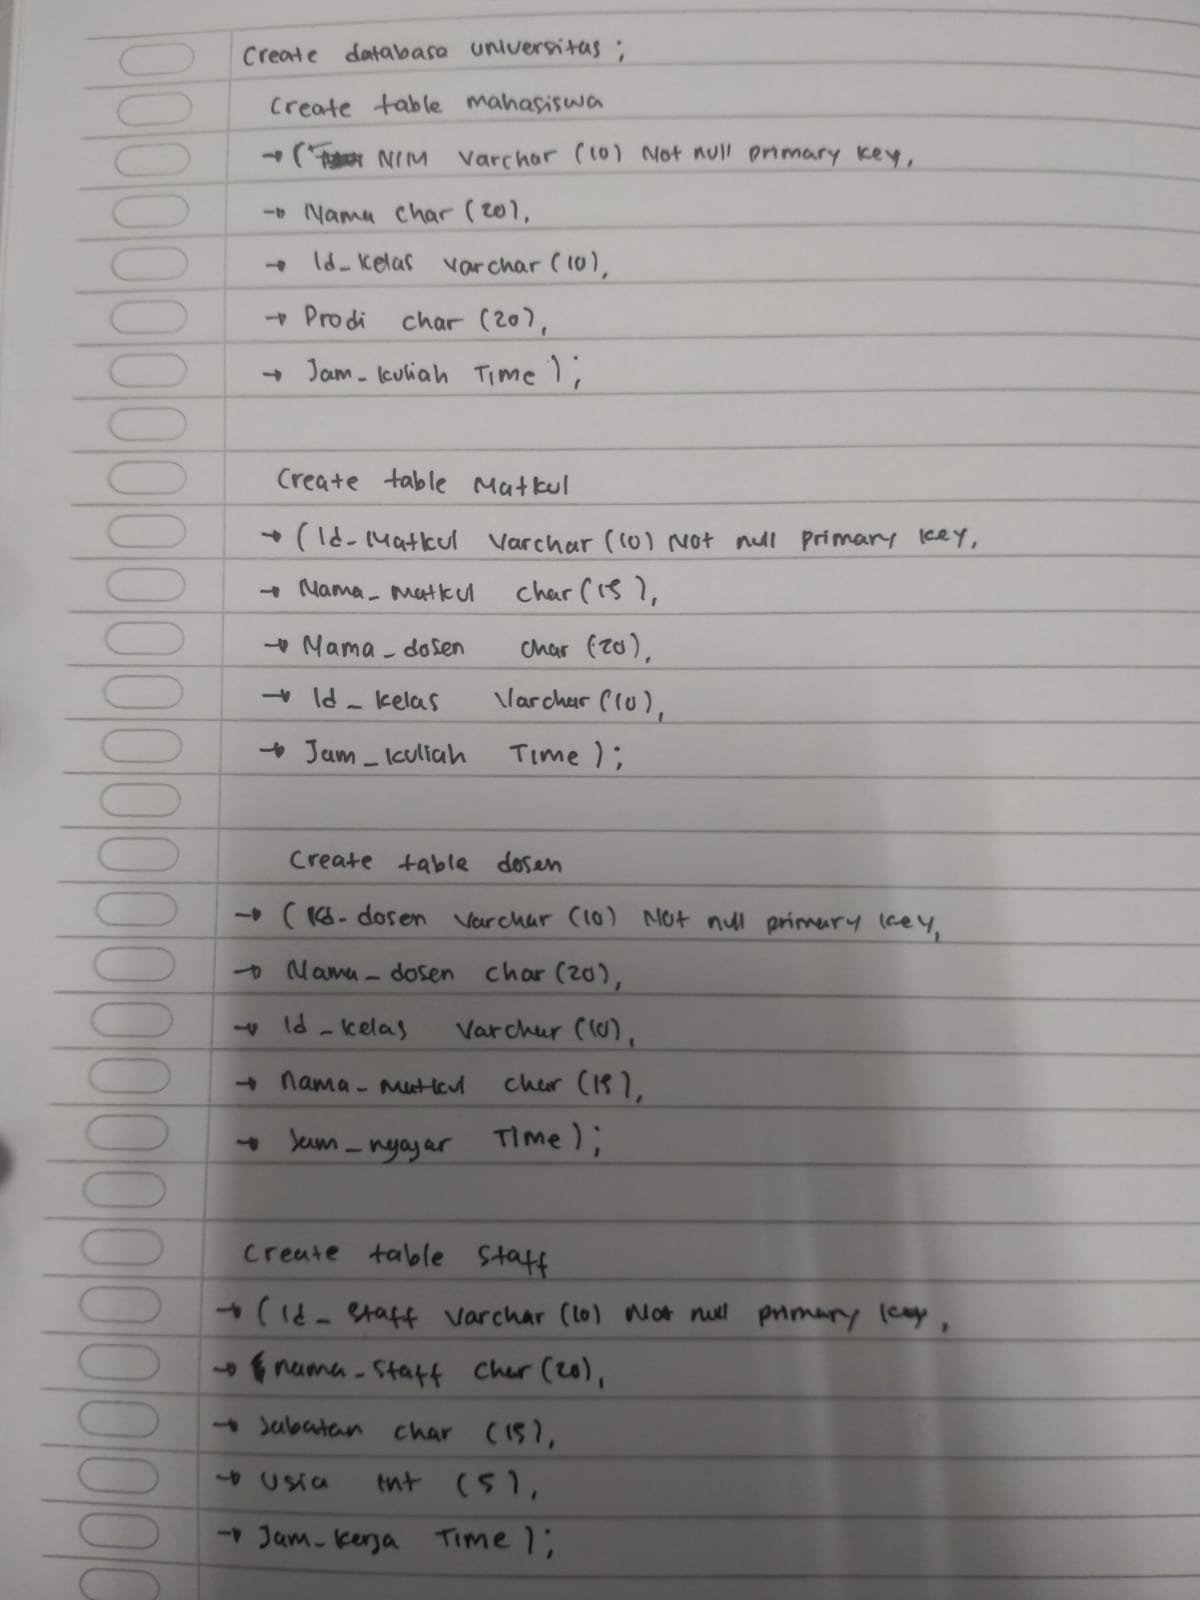 Create database universitas;
Create table mahasiswa
→ ( NIM Varchar (10) Not null primary key,
→ Nama char (20),
→ Id_kelas varchar (10),
→ Prodi char (20),
→ Jam_kuliah Time );
Create table Matkul
→ ( Id_Matkul Varchar (10) Not null primary key,
→ Nama_matkul char (15),
→ Nama_dosen char (20),
→ Id_kelas Varchar (10),
→ Jam_kuliah Time );
Create table dosen
→ ( Kd_dosen Varchar (10) Not null primary key,
→ Nama_dosen char (20),
→ Id_kelas Varchar (10),
→ nama_matkul char (15),
→ Jam_ngajar Time );
Create table Staff
→ ( Id_Staff Varchar (10) Not null primary key,
→ nama_Staff Char (20),
→ Jabatan char (15),
→ Usia Int (5),
→ Jam_kerja Time );